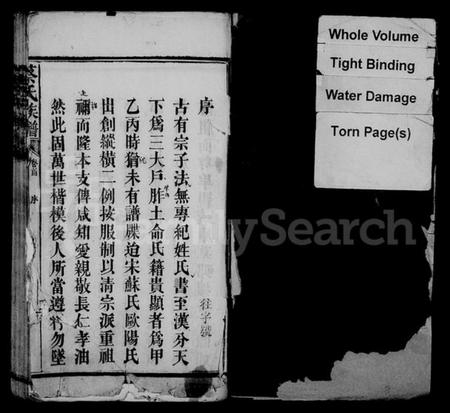 序
往字號
古有宗子法無專紀姓氏書至漢分天
下爲三大戶胙土命氏籍貴顯者爲甲
乙丙時猶未有譜牒迨宋蘇氏歐陽氏
出創縱橫二例按服制以清宗派重祖
禰而隆本支俾咸知愛親敬長仁孝油
然此固萬世楷模後人所當遵將勿墜
蔡氏族譜
卷首
序
Whole Volume
Tight Binding
Water Damage
Torn Page(s)
FamilySearch